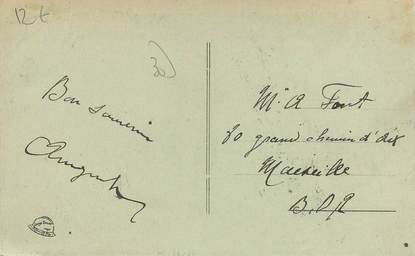 12 €
30
Bon souvenir
Mr A Font
80 grand chemin d'aix
Marseille
B. D. R